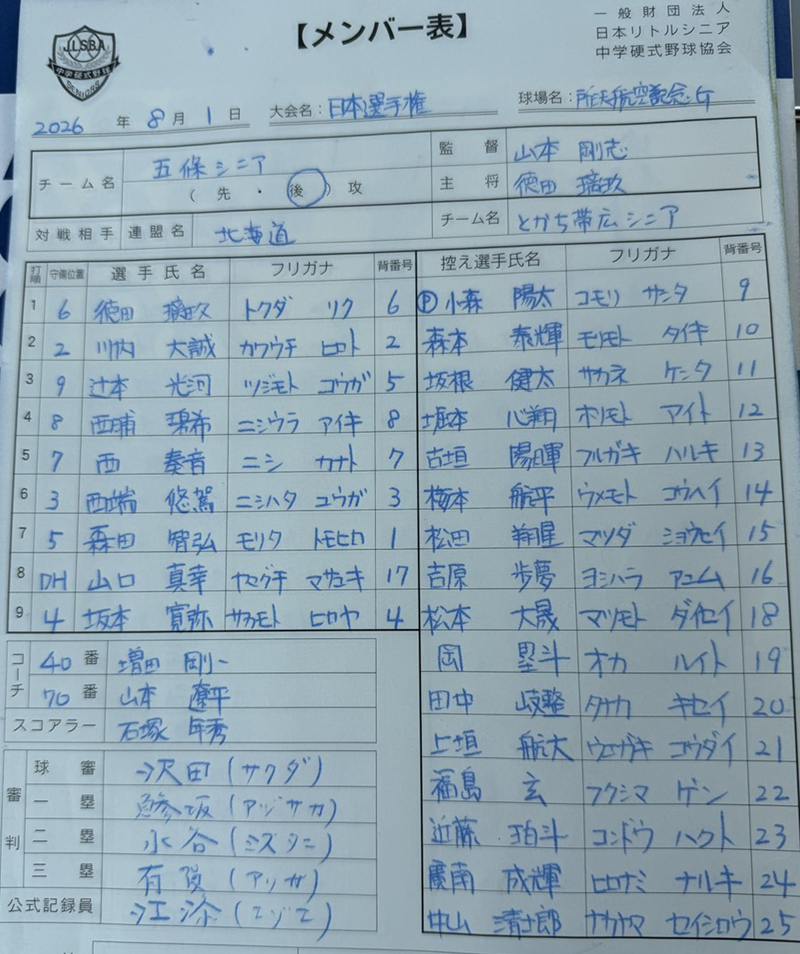 J.L.S.B.A
中学硬式野球
【メンバー表】
一般財団法人
日本リトルシニア
中学硬式野球協会
2026 年 8 月 1 日 大会名：日本選手権 球場名：所沢航空記念G
チーム名 五條シニア 監督 山本 剛志
（先・後）攻 主将 徳田 璃玖
対戦相手 連盟名 北海道 チーム名 とかち帯広シニア
打順 守備位置 選手氏名 フリガナ 背番号 控え選手氏名 フリガナ 背番号
1 6 徳田 璃玖 トクダ リク 6 Ⓟ小森 陽太 コモリ サンタ 9
2 2 川内 大誠 カワウチ ヒロト 2 森本 泰輝 モリモト タイキ 10
3 9 辻本 光河 ツジモト コウガ 5 坂根 健太 サカネ ケンタ 11
4 8 西浦 碧希 ニシウラ アイキ 8 堀本 心翔 ホリモト アイト 12
5 7 西 奏音 ニシ カナト 7 古垣 陽暉 フルガキ ハルキ 13
6 3 西端 悠駕 ニシハタ ユウガ 3 梅本 航平 ウメモト コウヘイ 14
7 5 森田 智弘 モリタ トモヒロ 1 松田 翔星 マツダ ショウセイ 15
8 DH 山口 真幸 ヤマグチ マサユキ 17 吉原 歩夢 ヨシハラ アユム 16
9 4 坂本 寛弥 サカモト ヒロヤ 4 松本 大晟 マツモト ダイセイ 18
岡 塁斗 オカ ルイト 19
田中 岐整 タナカ キセイ 20
上垣 航大 ウエガキ コウダイ 21
福島 玄 フクシマ ゲン 22
近藤 珀斗 コンドウ ハクト 23
廣南 成輝 ヒロナミ ナルキ 24
中山 清士郎 ナカヤマ セイシロウ 25
コーチ 40番 増田 剛一
70番 山本 遼平
スコアラー 石塚 年秀
審判 球審 沢田（サワダ）
一塁 鯵坂（アジサカ）
二塁 水谷（ミズタニ）
三塁 有賀（アリガ）
公式記録員 江添（エゾエ）